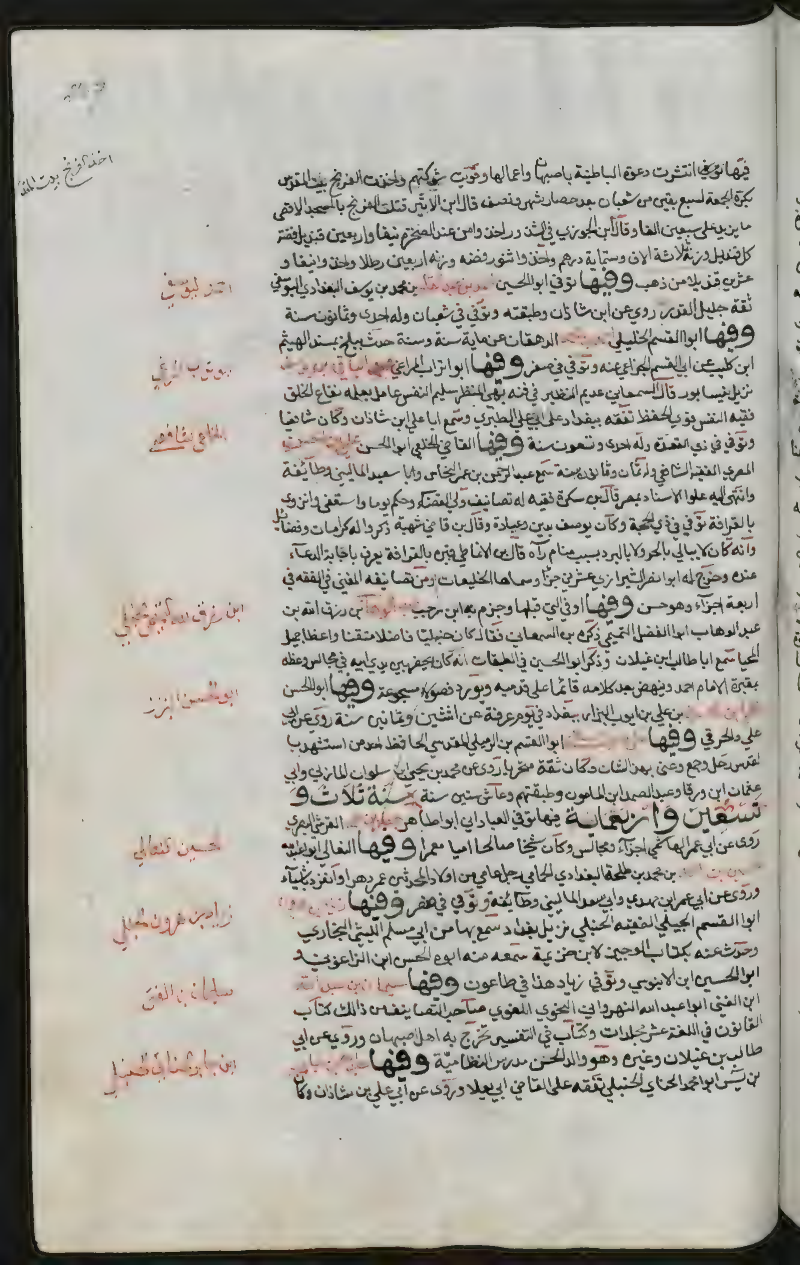 اخذ الافرنج بيت المقدس
فيها توفي انتشرت دعوة الباطنية باصبهان واعمالها وقويت شوكتهم واخذت الفرنج بيت المقدس
بكرة الجمعة لسبع بقين من شعبان بعد حصار شهر ونصف قال ابن الاثير قتلت الفرنج بالمسجد الاقصى
ما يزيد على سبعين الفا وقال ابن الجوزي في واخذ وامن عند الصخرة نيفا واربعين قنديل فضة
كل قنديل وزنه ثلاثة الاف وستماية درهم واخذوا تنور فضة وزنه اربعين رطلا واخذوا نيفا و
عشرين قنديلا من ذهب وفيها توفي ابو الحسين بن محمد بن يوسف البغدادي اليوسفي
ثقة جليل القدر روى عن ابن شاذان وطبقته وتوفي في شعبان وله احدى وثمانون سنة
وفيها ابو القسم الخليلي الدهقان عن ماية سنة وسنة حدث ببلخ بمسند الهيثم
ابن كليب عن ابي القسم الخزاعي عنه وتوفي في صفر وفيها ابو تراب المراغي
نزيل نيسابور قال السمعاني عديم النظير في فنه بهي المنظر سليم النفس عامل بعلمه نفاع الخلق
فقيه النفس قوي الحفظ تفقه ببغداد على ابي علي الطبري وسمع ابا علي ابن شاذان وكان شافعيا
وتوفي في ذي القعدة وله احدى وتسعون سنة وفيها القاضي الخلعي ابو الحسن علي بن الحسن
المصري الفقيه الشافعي وله ثمان وثمانون سنة سمع عبد الرحمن بن عمر النحاس وابا سعيد الماليني وطايفة
وانتهى اليه علو الاسناد بمصر قال ابن سكرة فقيه له تصانيف ولي القضاء وحكم يوما واستعفى وانزوى
بالقرافة توفي في ذي الحجة وكان يوصف بدين وعبادة وقال ابن قاضي شهبة ذكروا له كرامات وفضايل
وانه كان لا يبالي بالحر ولا بالبرد بسبب منام رآه قال ابن الانماطي قبره بالقرافة يعرف باجابة الدعاء
عنده وخرج له ابو نصر الشيرازي عشرين جزءا وسماها الخلعيات ومن تصانيفه المغني في الفقه في
اربعة اجزاء وهو حسن وفيها او في التي قبلها وجزم به ابن رجب بن رزق الله بن
عبد الوهاب ابو الفضل التميمي ذكره بن السمعاني فقال كان حنبليا فاضلا متقنا واعظا جميل
المحيا سمع ابا طالب ابن غيلان وذكر ابو الحسين في الطبقات انه كان يحضر بين يدي ابيه في مجالس وعظه
بمقبرة الامام احمد وينهض بعد كلامه قائما على قدميه ويورد فصولا مسجوعة وفيها ابو الحسن
بن علي بن ايوب البزاز ببغداد في يوم عرفة عن اثنتين وثمانين سنة روى عن ابي
علي والحرقي وفيها ابو القسم بن الرميلي المقدسي الحافظ احد من استشهد با
لقدس رحل وجمع وعني بهذا الشان وكان ثقة متحريا روى عن محمد بن يحيى ابن سلوان المازني وابي
عثمان ابن ورقا وعبد الصمد ابن المامون وطبقتهم وعاش ستين سنة سنة ثلاث و
تسعين واربعماية فيها توفي العباداني ابو طاهر القرشي البصري
روى عن ابي عمر الهاشمي اجزاء ومجالس وكان شيخا صالحا اميا معمرا وفيها النعالي ابو عبد الله
بن محمد بن طلحة البغدادي الحامي رجل عامي من اولاد المحدثين عمر دهرا وانفرد باشياء
وروى عن ابي عمر ابن مهدي وابي سعد الماليني وطايفة وتوفي في صفر وفيها
ابو القسم الجيلي الفقيه الحنبلي نزيل بغداد سمع بها من ابي مسلم الليثي البخاري
وحدث عنه بكتاب الوجيز لابن خزيمة سمعه منه ابو الحسن ابن الزاغوني و
ابو الحسين ابن الابنوسي وتوفي زياد هذا في طاعون وفيها سليمان بن عبد الله
ابن الفتى ابو عبد الله النهرواني النحوي اللغوي صاحب التصانيف من ذالك كتاب
القانون في اللغة عشر مجلدات وكتاب في التفسير تخرج به اهل اصبهان وروى عن ابي
طالب بن غيلان وغيره وهو والد الحسن مدرس النظامية وفيها
بن يس ابو محمد الحناي الحنبلي تفقه على القاضي ابي يعلا وروى عن ابي علي بن شاذان وكان
احمد اليوسفي
ابو تراب المراغي
الخلعي الشافعي
ابن رزق الله التميمي الحنبلي
ابو الحسن البزاز
الحسين النعالي
زياد بن هرون الجبلي
سليمان بن الفتى